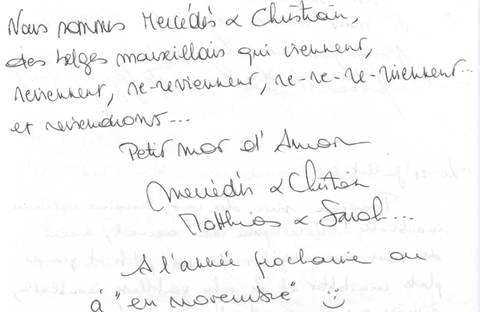 Nous sommes Mercédès & Christian,
des belges marseillais qui viennent,
reviennent, re-reviennent, re-re-re-viennent...
et reviendrons...
Petit mot d'Amon
Mercédès & Christian
Matthias & Sarah...
A l'année prochaine ou
à "en novembre" ☺